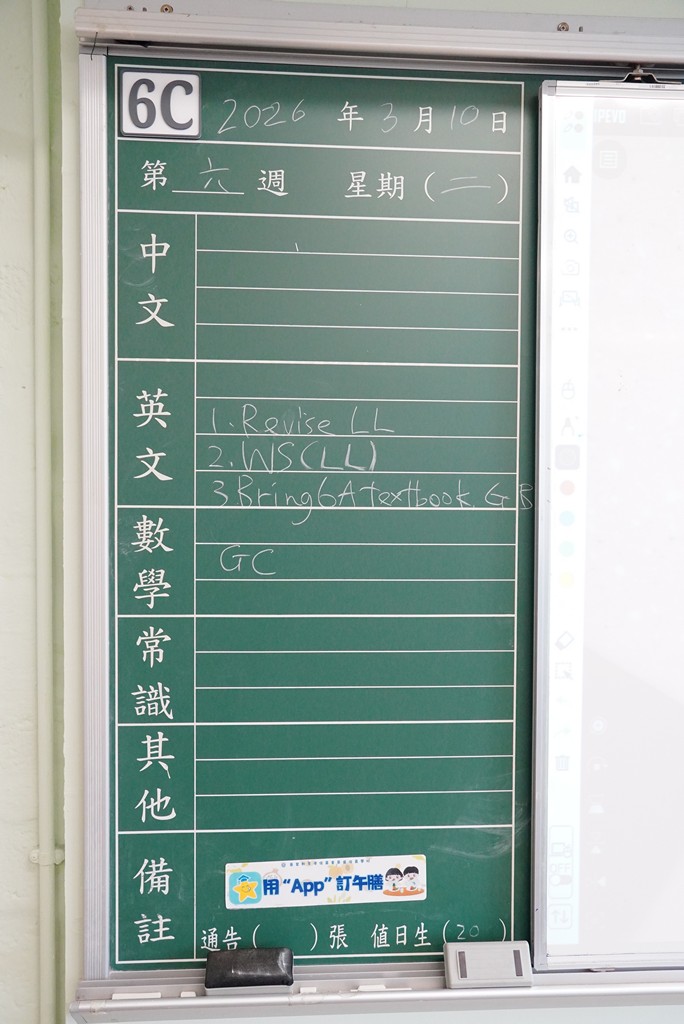 6C 2026 年 3 月 10 日
第 六 週 星期 (二)
中文
英文
1. Revise LL
2. WS(LL)
3. Bring 6A textbook. GB
數學
GC
常識
其他
備註
用“App”訂午膳
通告 ( ) 張 值日生 (20)